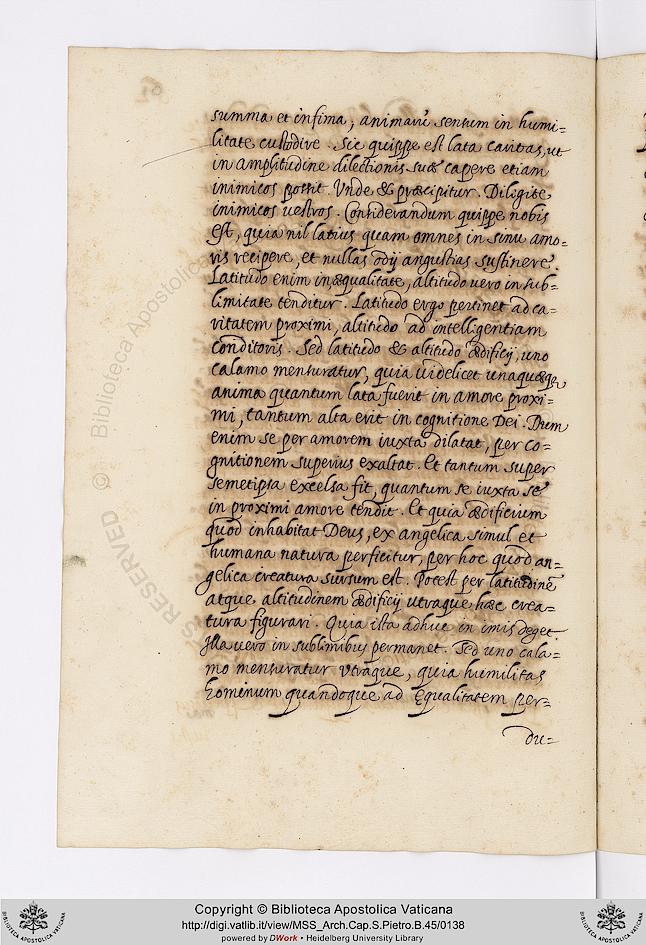 summa et infima, animarū sensum in humi=
litate custodire. Sic quippe est lata caritas, ut
in amplitudine dilectionis suæ capere etiam
inimicos possit. Vnde & præcipitur. Diligite
inimicos uestros. Considerandum quippe nobis
est, quia nil latius quam omnes in sinu amo=
ris recipere, et nullas odij angustias sustinere.
Latitudo enim in æqualitate, altitudo uero in sub=
limitate tenditur. Latitudo ergo pertinet ad ca=
ritatem proximi, altitudo ad intelligentiam
conditoris. Sed latitudo & altitudo ædificij, uno
calamo mensuratur, quia uidelicet unaquæq;
anima quantum lata fuerit in amore proxi=
mi, tantum alta erit in cognitione Dei. Dum
enim se per amorem iuxta dilatat, per co=
gnitionem superius exaltat. Et tantum super
semetipsa excelsa fit, quantum se iuxta se
in proximi amore tendit. Et quia ædificium
quod inhabitat Deus, ex angelica simul et
humana natura perficitur, per hoc quod an=
gelica creatura sursum est. Potest per latitudinē
atque altitudinem ædificij utraque hæc crea=
tura figurari. Quia ista adhuc in imis deget.
Illa uero in sublimibus permanet. Sed uno cala=
mo mensuratur utraque, quia humilitas
hominum quandoque ad ęqualitatem per=
du=
Biblioteca Apostolica
© RESERVED
Copyright © Biblioteca Apostolica Vaticana
http://digi.vatlib.it/view/MSS_Arch.Cap.S.Pietro.B.45/0138
powered by DWork • Heidelberg University Library